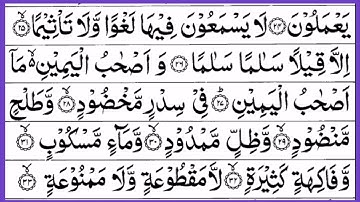 يَعْمَلُوْنَ ۝٢٤ لَا يَسْمَعُوْنَ فِيْهَا لَغْوًا وَّلَا تَاْثِيْمًا ۝٢٥
اِلَّا قِيْلًا سَلٰمًا سَلٰمًا ۝٢٦ وَ اَصْحٰبُ الْيَمِيْنِ ۙ۬ مَاۤ
اَصْحٰبُ الْيَمِيْنِ ۝٢٧ فِيْ سِدْرٍ مَّخْضُوْدٍ ۝٢٨ وَّطَلْحٍ
مَّنْضُوْدٍ ۝٢٩ وَّظِلٍّ مَّمْدُوْدٍ ۝٣٠ وَّمَآءٍ مَّسْكُوْبٍ ۝٣١
وَّفَاكِهَةٍ كَثِيْرَةٍ ۝٣٢ لَّا مَقْطُوْعَةٍ وَّلَا مَمْنُوْعَةٍ ۝٣٣